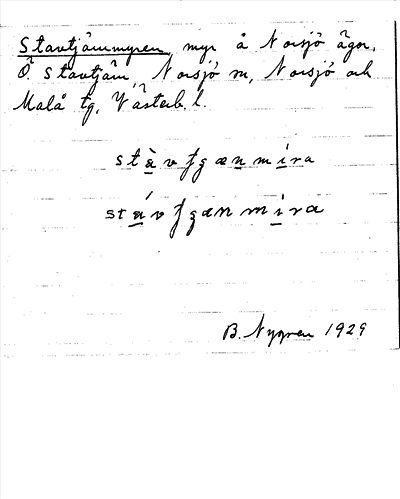 Stavtjärnmyren, myr å Norsjö ägor,
Ö. Stavtjärn, Norsjö sn, Norsjö och
Malå tg, Västerb. l.
stàvfgænmíra
stávfgænmira
B. Nygren 1929